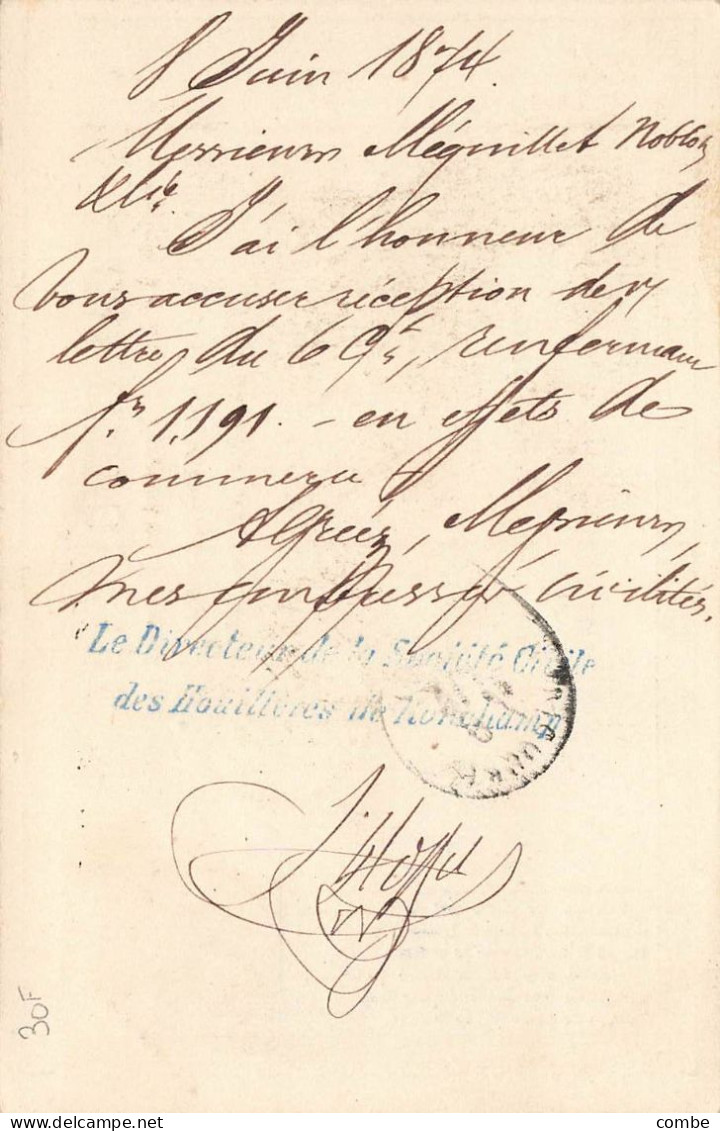 8 Juin 1874.
Messieurs Méquillet Noblot
&Cie.
J'ai l'honneur de
vous accuser réception de v/
lettre du 6 Ct, renfermant
frs 1,191. — en effets de
commerce
Agréez, Messieurs,
mes empressées civilités.
Le Directeur de la Société Civile
des Houillères de Ronchamp
30F
combe